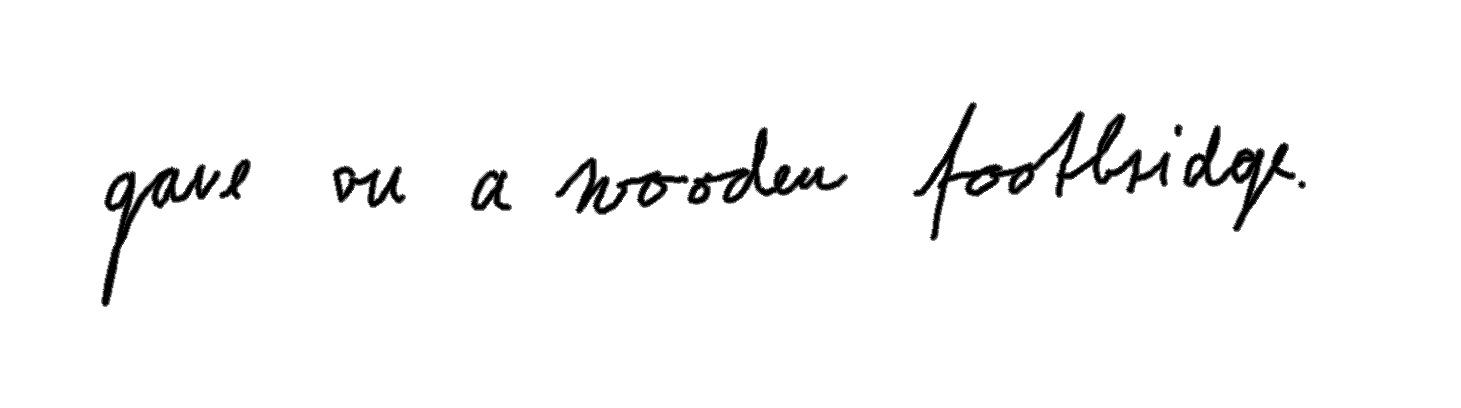 gave on a wooden footbridge.